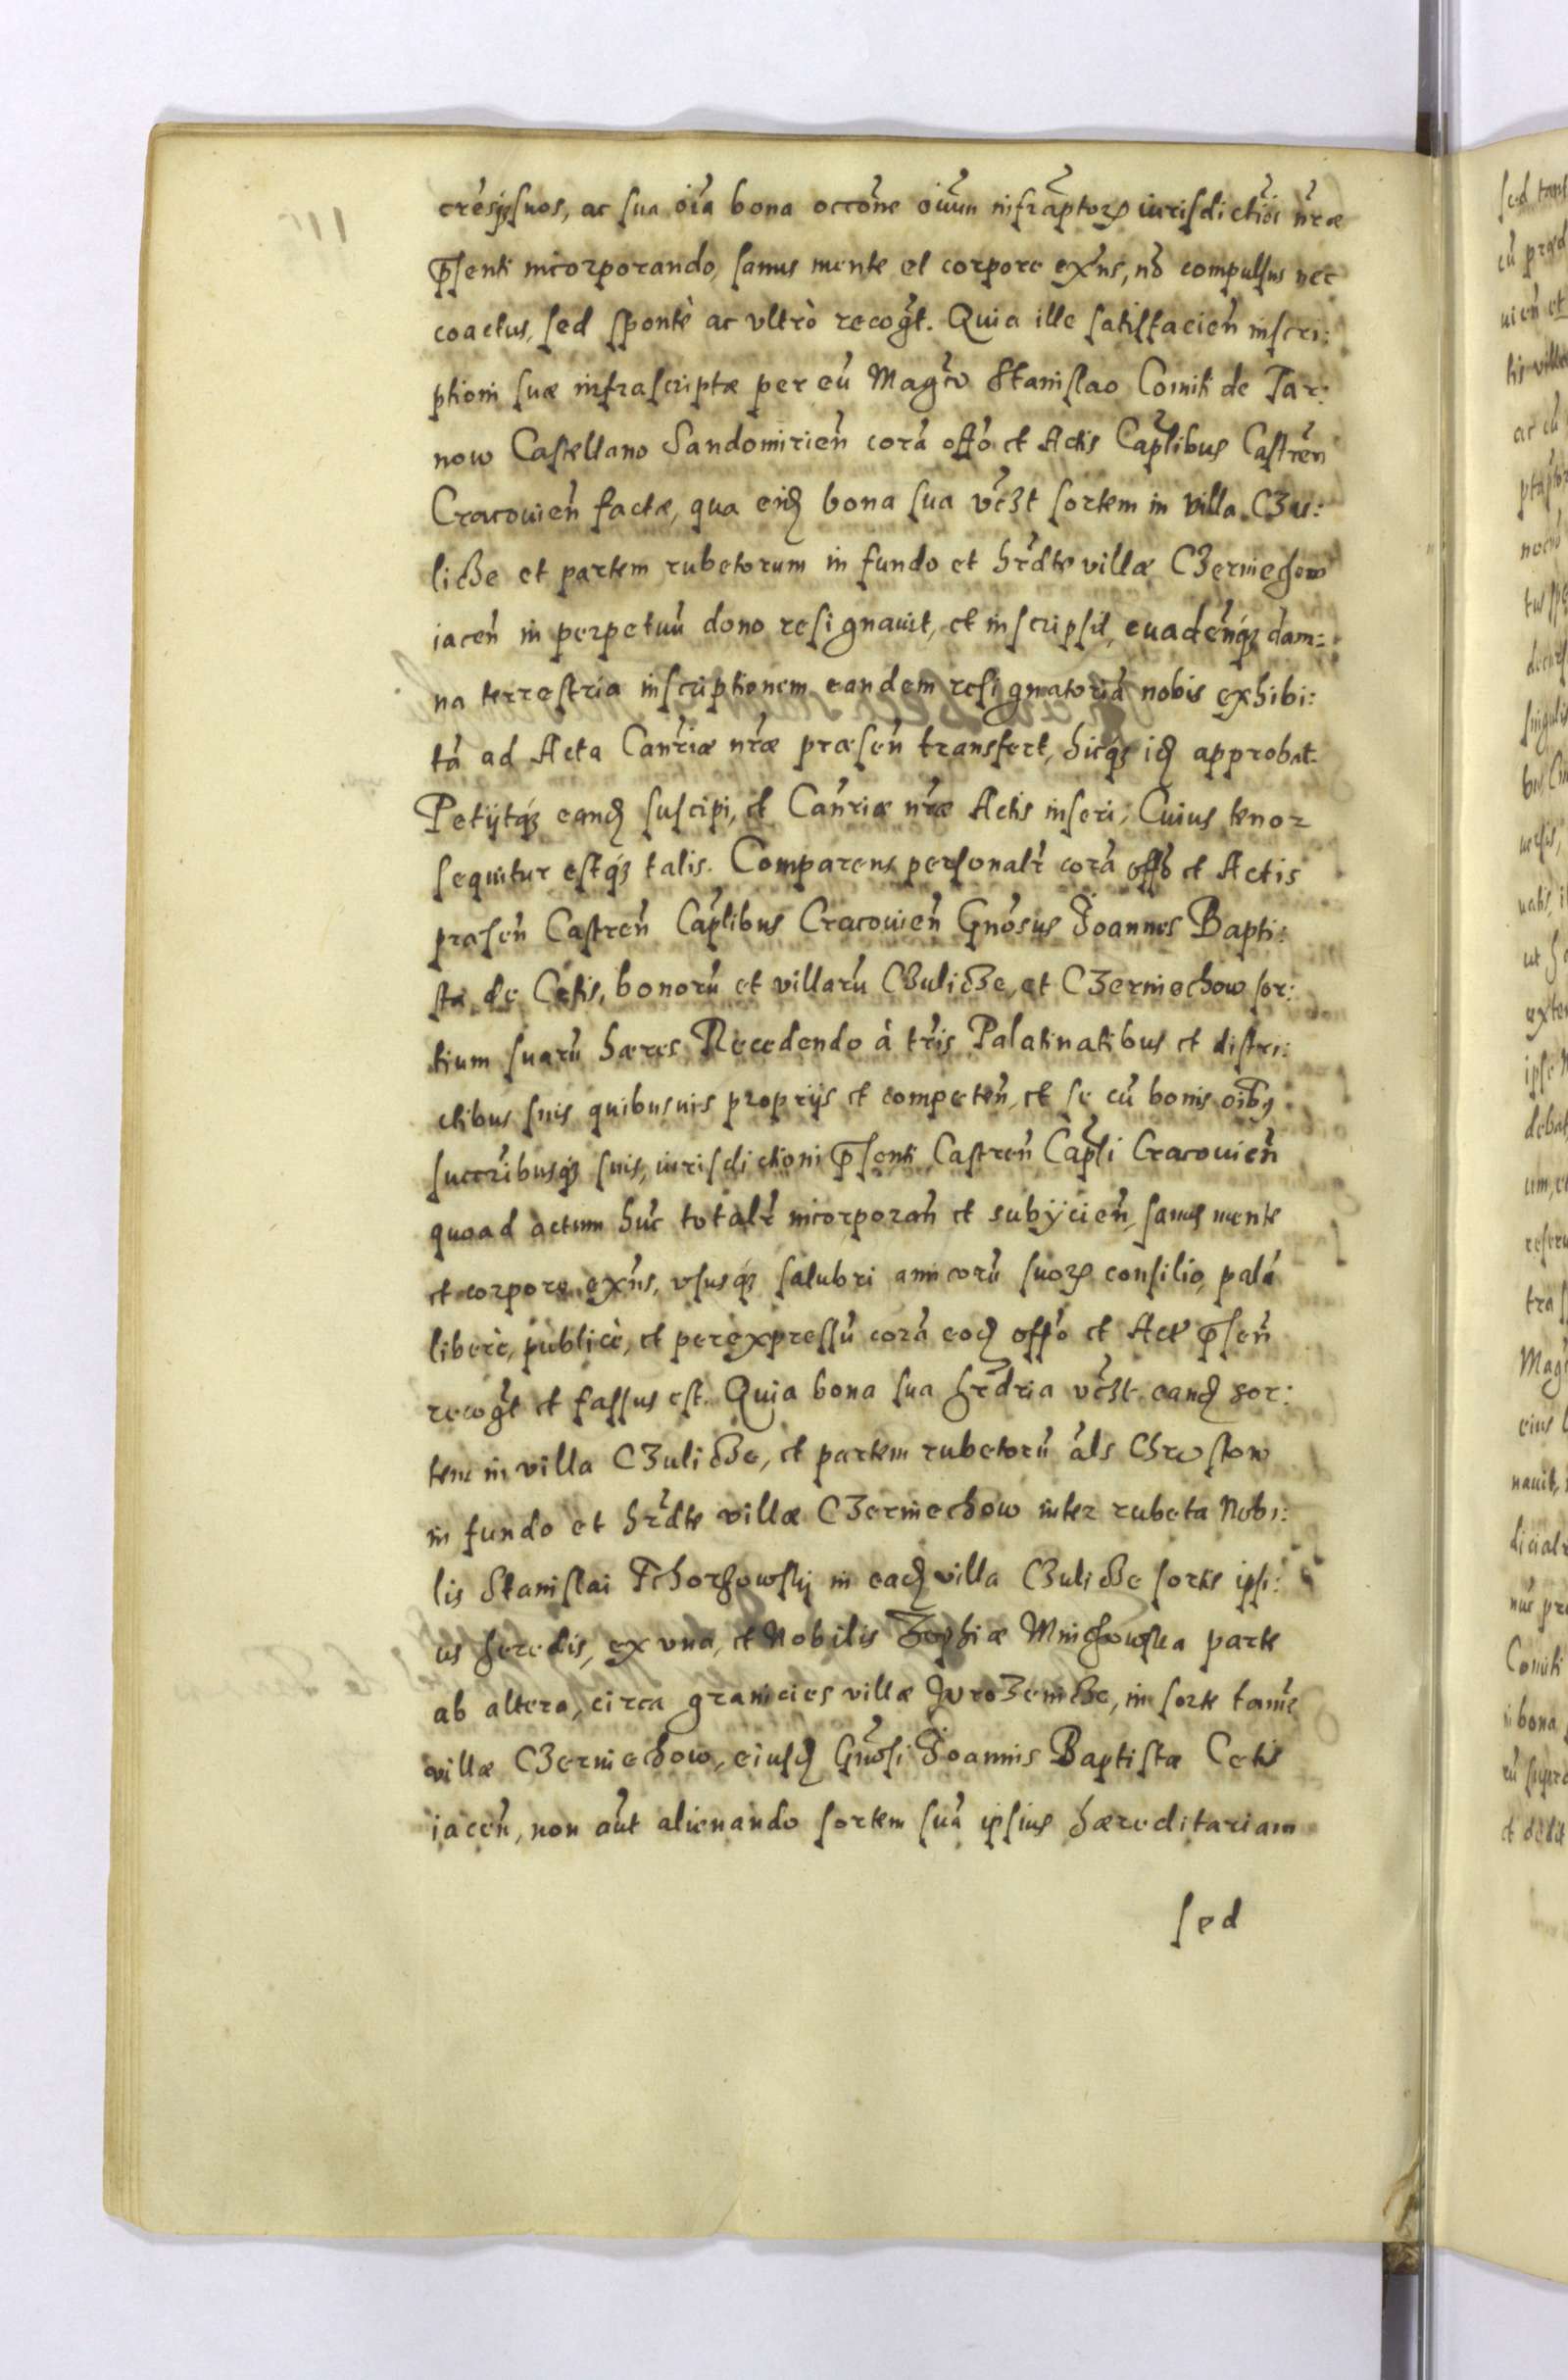 crẽsq̃ suos, ac sua oĩa bona occõne oĩum infraptorꝝ iurisdictiõi nr̃æ
p̃senti incorporando, sanus mente et corpore exñs, nõ compulsus nec
coactus, sed spontè ac vltrò recogt̃. Quia ille satisfacieñ inscri:
ptioni suæ infrascriptæ per eũ Magco Stanislao Comiti de Tar:
now Castellano Sandomirieñ corã offõ et Actis Capl̃ibus Castreñ
Cracouieñ factæ, qua eid̃ bona sua vcz̃t sortem in villa Czu:
licze et partem rubetorum in fundo et hrd̃te villæ Czerniechow
iaceñ in perpetuũ dono resignauit, et inscripsit, euadeñqꝫ dam:
na terrestria inscriptionem eandem resignatoriã nobis exhibi:
tã ad Acta Canr̃iæ nr̃æ præseñ transfert, hicqꝫ id̃ approbat.
Petijtqꝫ eand̃ suscipi, et Canr̃iæ nr̃æ Actis inseri, Cuius tenor
sequitur estqꝫ talis. Comparens personalr̃ corã offõ et Actis
præseñ Castreñ Capl̃ibus Cracouieñ Gnõsus Joannes Bapti:
sta de Cetis, bonorũ et villarũ Czulicze, et Czerniechow sor:
tium suarũ hæres Recedendo à tr̃is Palatinatibus et distri:
ctibus suis quibusuis proprijs et competeñ, et se cũ bonis oĩbꝫ
succr̃ibusqꝫ suis, iurisdictioni p̃senti Castreñ Capl̃i Cracouieñ
quoad actum hũc totalr̃ incorporañ et subijcieñ, sanus mente
et corpore exñs, vsusqꝫ salubri amicorũ suorꝝ consilio, palã
liberè, publicè, et per expressũ corã eod̃ offõ et Act̃ p̃señ
recogt̃ et fassus est. Quia bona sua hrd̃ria vcz̃t eand̃ sor:
tem in villa Czulicze, et partem rubetorũ als̃ Chrostow
in fundo et hrd̃te villæ Czerniechow inter rubeta Nobi:
lis Stanislai Tchorzowskj in ead̃ villa Czulicze sortis ipsi:
us heredis, ex vna, et Nobilis Zophiæ Mnichowska parte
ab altera, circa granicies villæ Jurozenicze, in sorte tamẽ
villæ Czerniechow, eiusd̃ Gnõsi Joannis Baptistæ Cetis
iaceñ, non aũt alienando sortem suã ipsius hæreditariam
sed